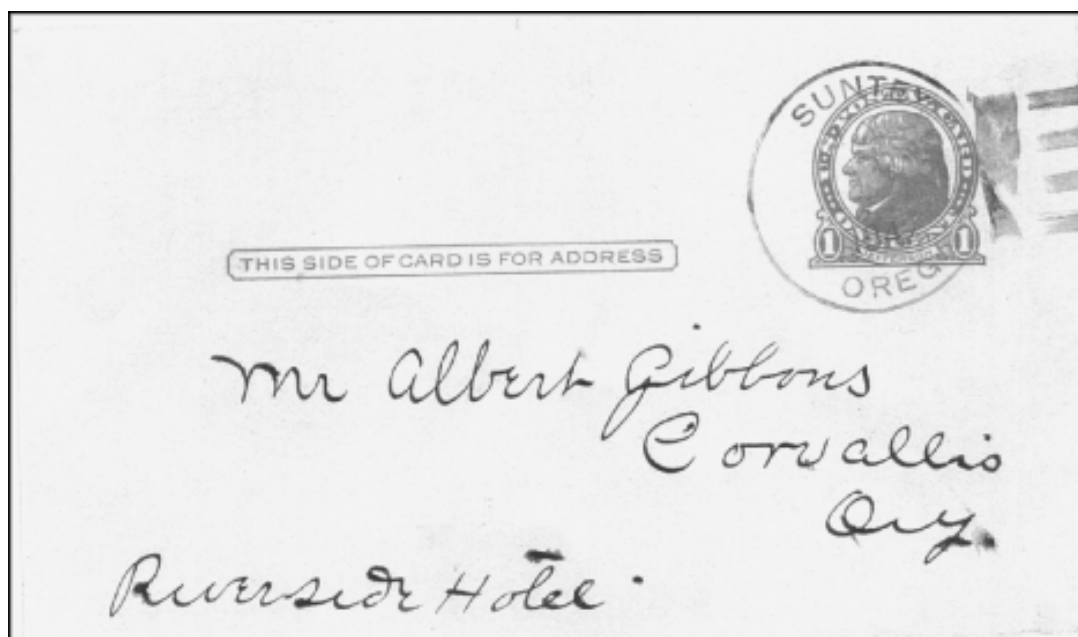 SUNTEX
OREG
1 1
THIS SIDE OF CARD IS FOR ADDRESS
Mr Albert Gibbons
Corvallis
Org.
Riverside Hotel